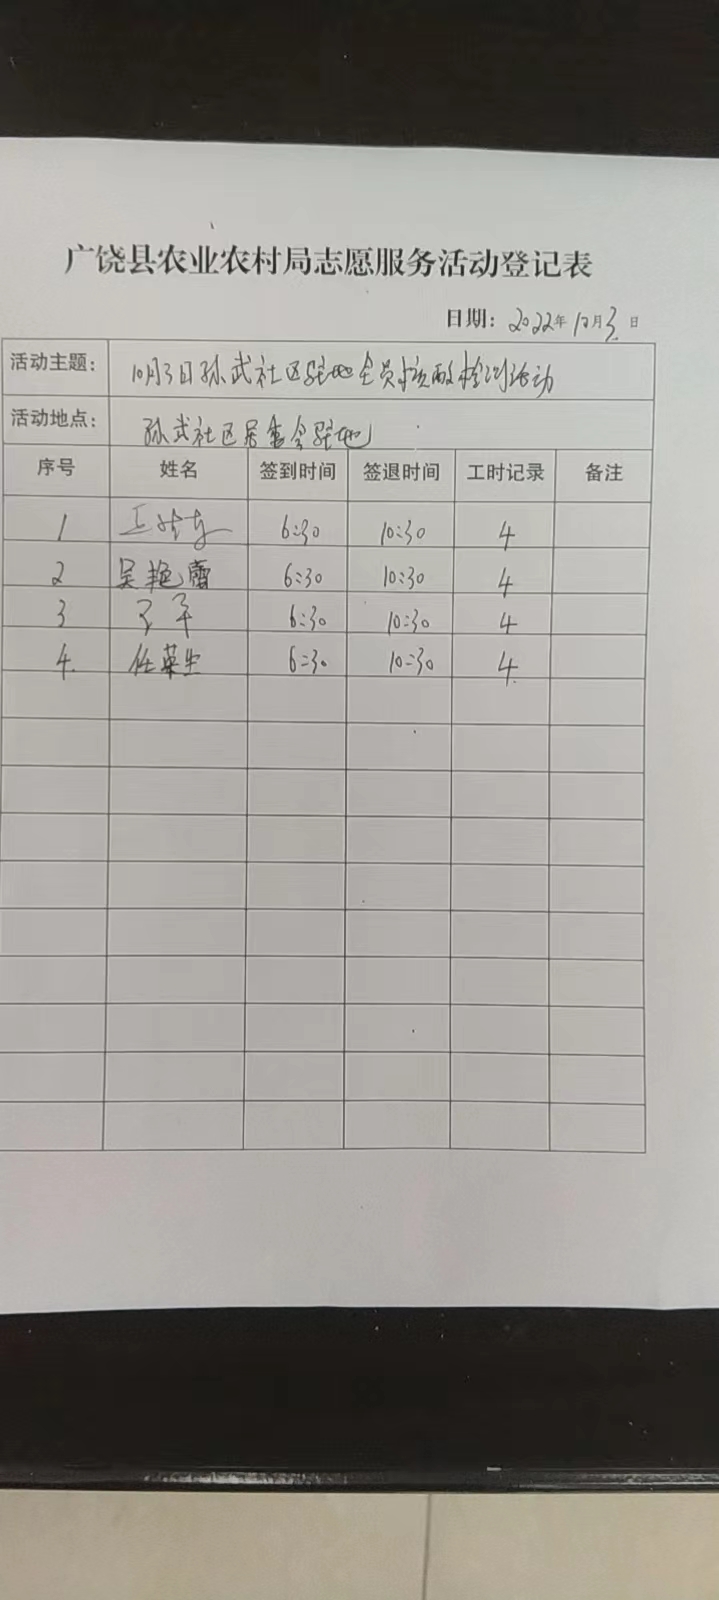 广饶县农业农村局志愿服务活动登记表
日期：2022年10月3日
活动主题： 10月3日孙武社区驻地全员核酸检测活动
活动地点： 孙武社区居委会驻地
序号 姓名 签到时间 签退时间 工时记录 备注
1 王 6:30 10:30 4
2 吴艳霞 6:30 10:30 4
3 6:30 10:30 4
4. 任荣生 6:30 10:30 4.